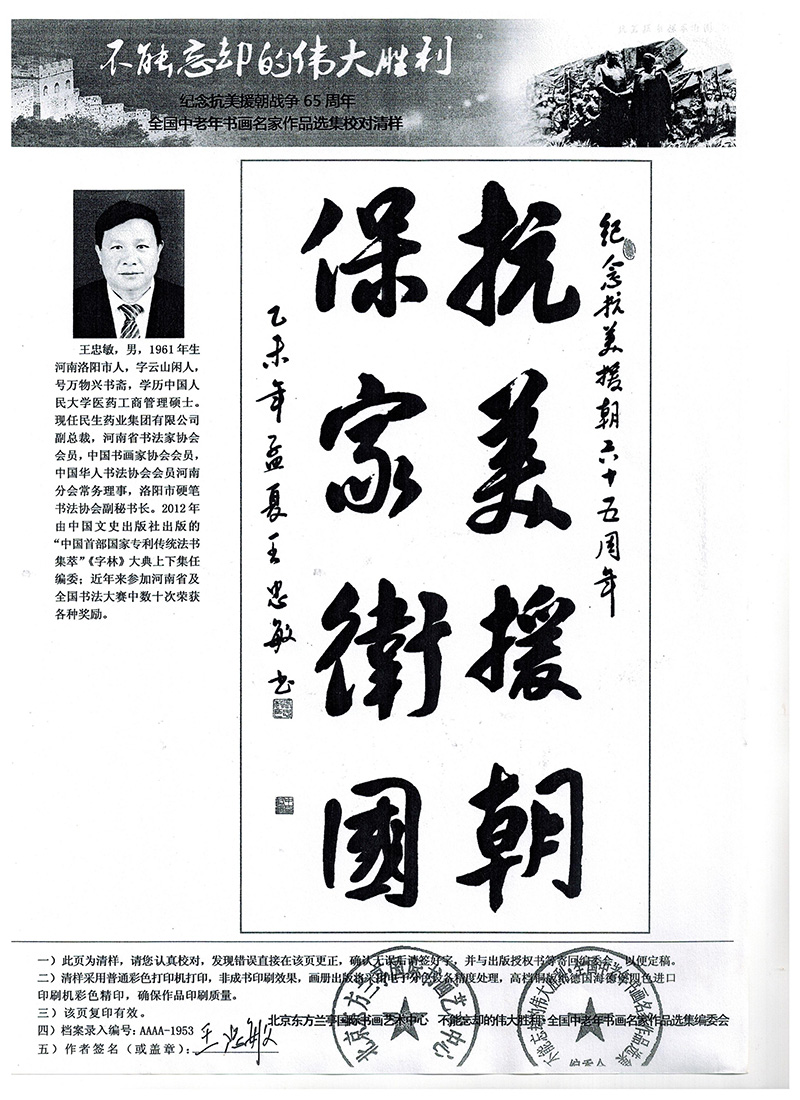 不能忘却的伟大胜利
纪念抗美援朝战争 65 周年
全国中老年书画名家作品选集校对清样
王忠敏，男，1961 年生
河南洛阳市人，字云山闲人，
号万物兴书斋，学历中国人
民大学医药工商管理硕士。
现任民生药业集团有限公司
副总裁，河南省书法家协会
会员，中国书画家协会会员，
中国华人书法协会会员河南
分会常务理事，洛阳市硬笔
书法协会副秘书长。2012 年
由中国文史出版社出版的
“中国首部国家专利传统法书
集萃”《字林》大典上下集任
编委；近年来参加河南省及
全国书法大赛中数十次荣获
各种奖励。
纪念抗美援朝六十五周年
抗美援朝
保家衛國
乙未年孟夏王忠敏书
一）此页为清样，请您认真校对，发现错误直接在该页更正，确认无误后请签好字，并与出版授权书等寄回编委会，以便定稿。
二）清样采用普通彩色打印机打印，非成书印刷效果，画册出版将采用电子分色设备精度处理，高档铜版纸德国海德堡四色进口
印刷机彩色精印，确保作品印刷质量。
三）该页复印有效。
北京东方兰亭国际书画艺术中心 不能忘却的伟大胜利·全国中老年书画名家作品选集编委会
四）档案录入编号：AAAA-1953
五）作者签名（或盖章）：王忠敏
北京东方兰亭国际书画艺术中心
不能忘却的伟大胜利·全国中老年书画名家作品选集
编委会